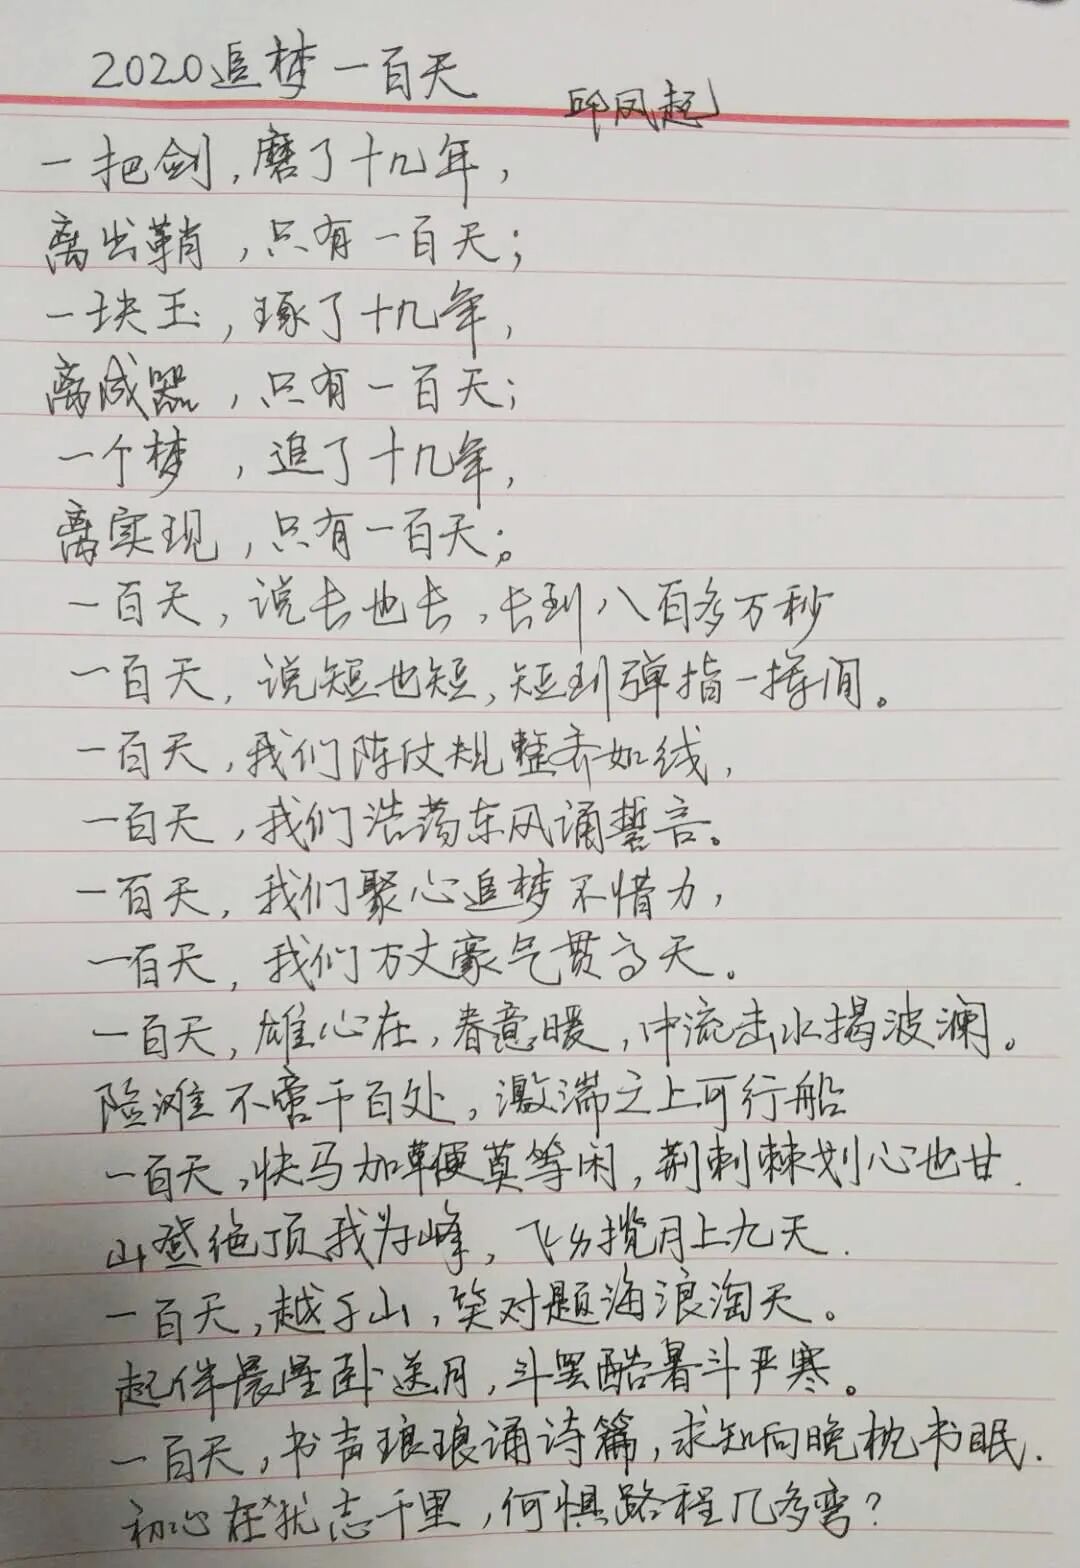 2020追梦一百天
邱凤起
一把剑,磨了十几年,
离出鞘,只有一百天;
一块玉,琢了十几年,
离成器,只有一百天;
一个梦,追了十几年,
离实现,只有一百天;。
一百天,说长也长,长到八百多万秒
一百天,说短也短,短到弹指一挥间。
一百天,我们阵仗规整齐如线,
一百天,我们浩荡东风诵誓言。
一百天,我们聚心追梦不惜力,
一百天,我们万丈豪气贯高天。
一百天,雄心在,春意暖,中流击水揭波澜。
险滩不啻千百处,激湍之上可行船
一百天,快马加鞭莫等闲,荆刺棘划心也甘.
山登绝顶我为峰,飞身揽月上九天.
一百天,越千山,笑对题海浪淘天。
起伴晨星卧送月,斗罢酷暑斗严寒。
一百天,书声琅琅诵诗篇,求知向晚枕书眠.
初心在犹志千里,何惧路程几多弯?